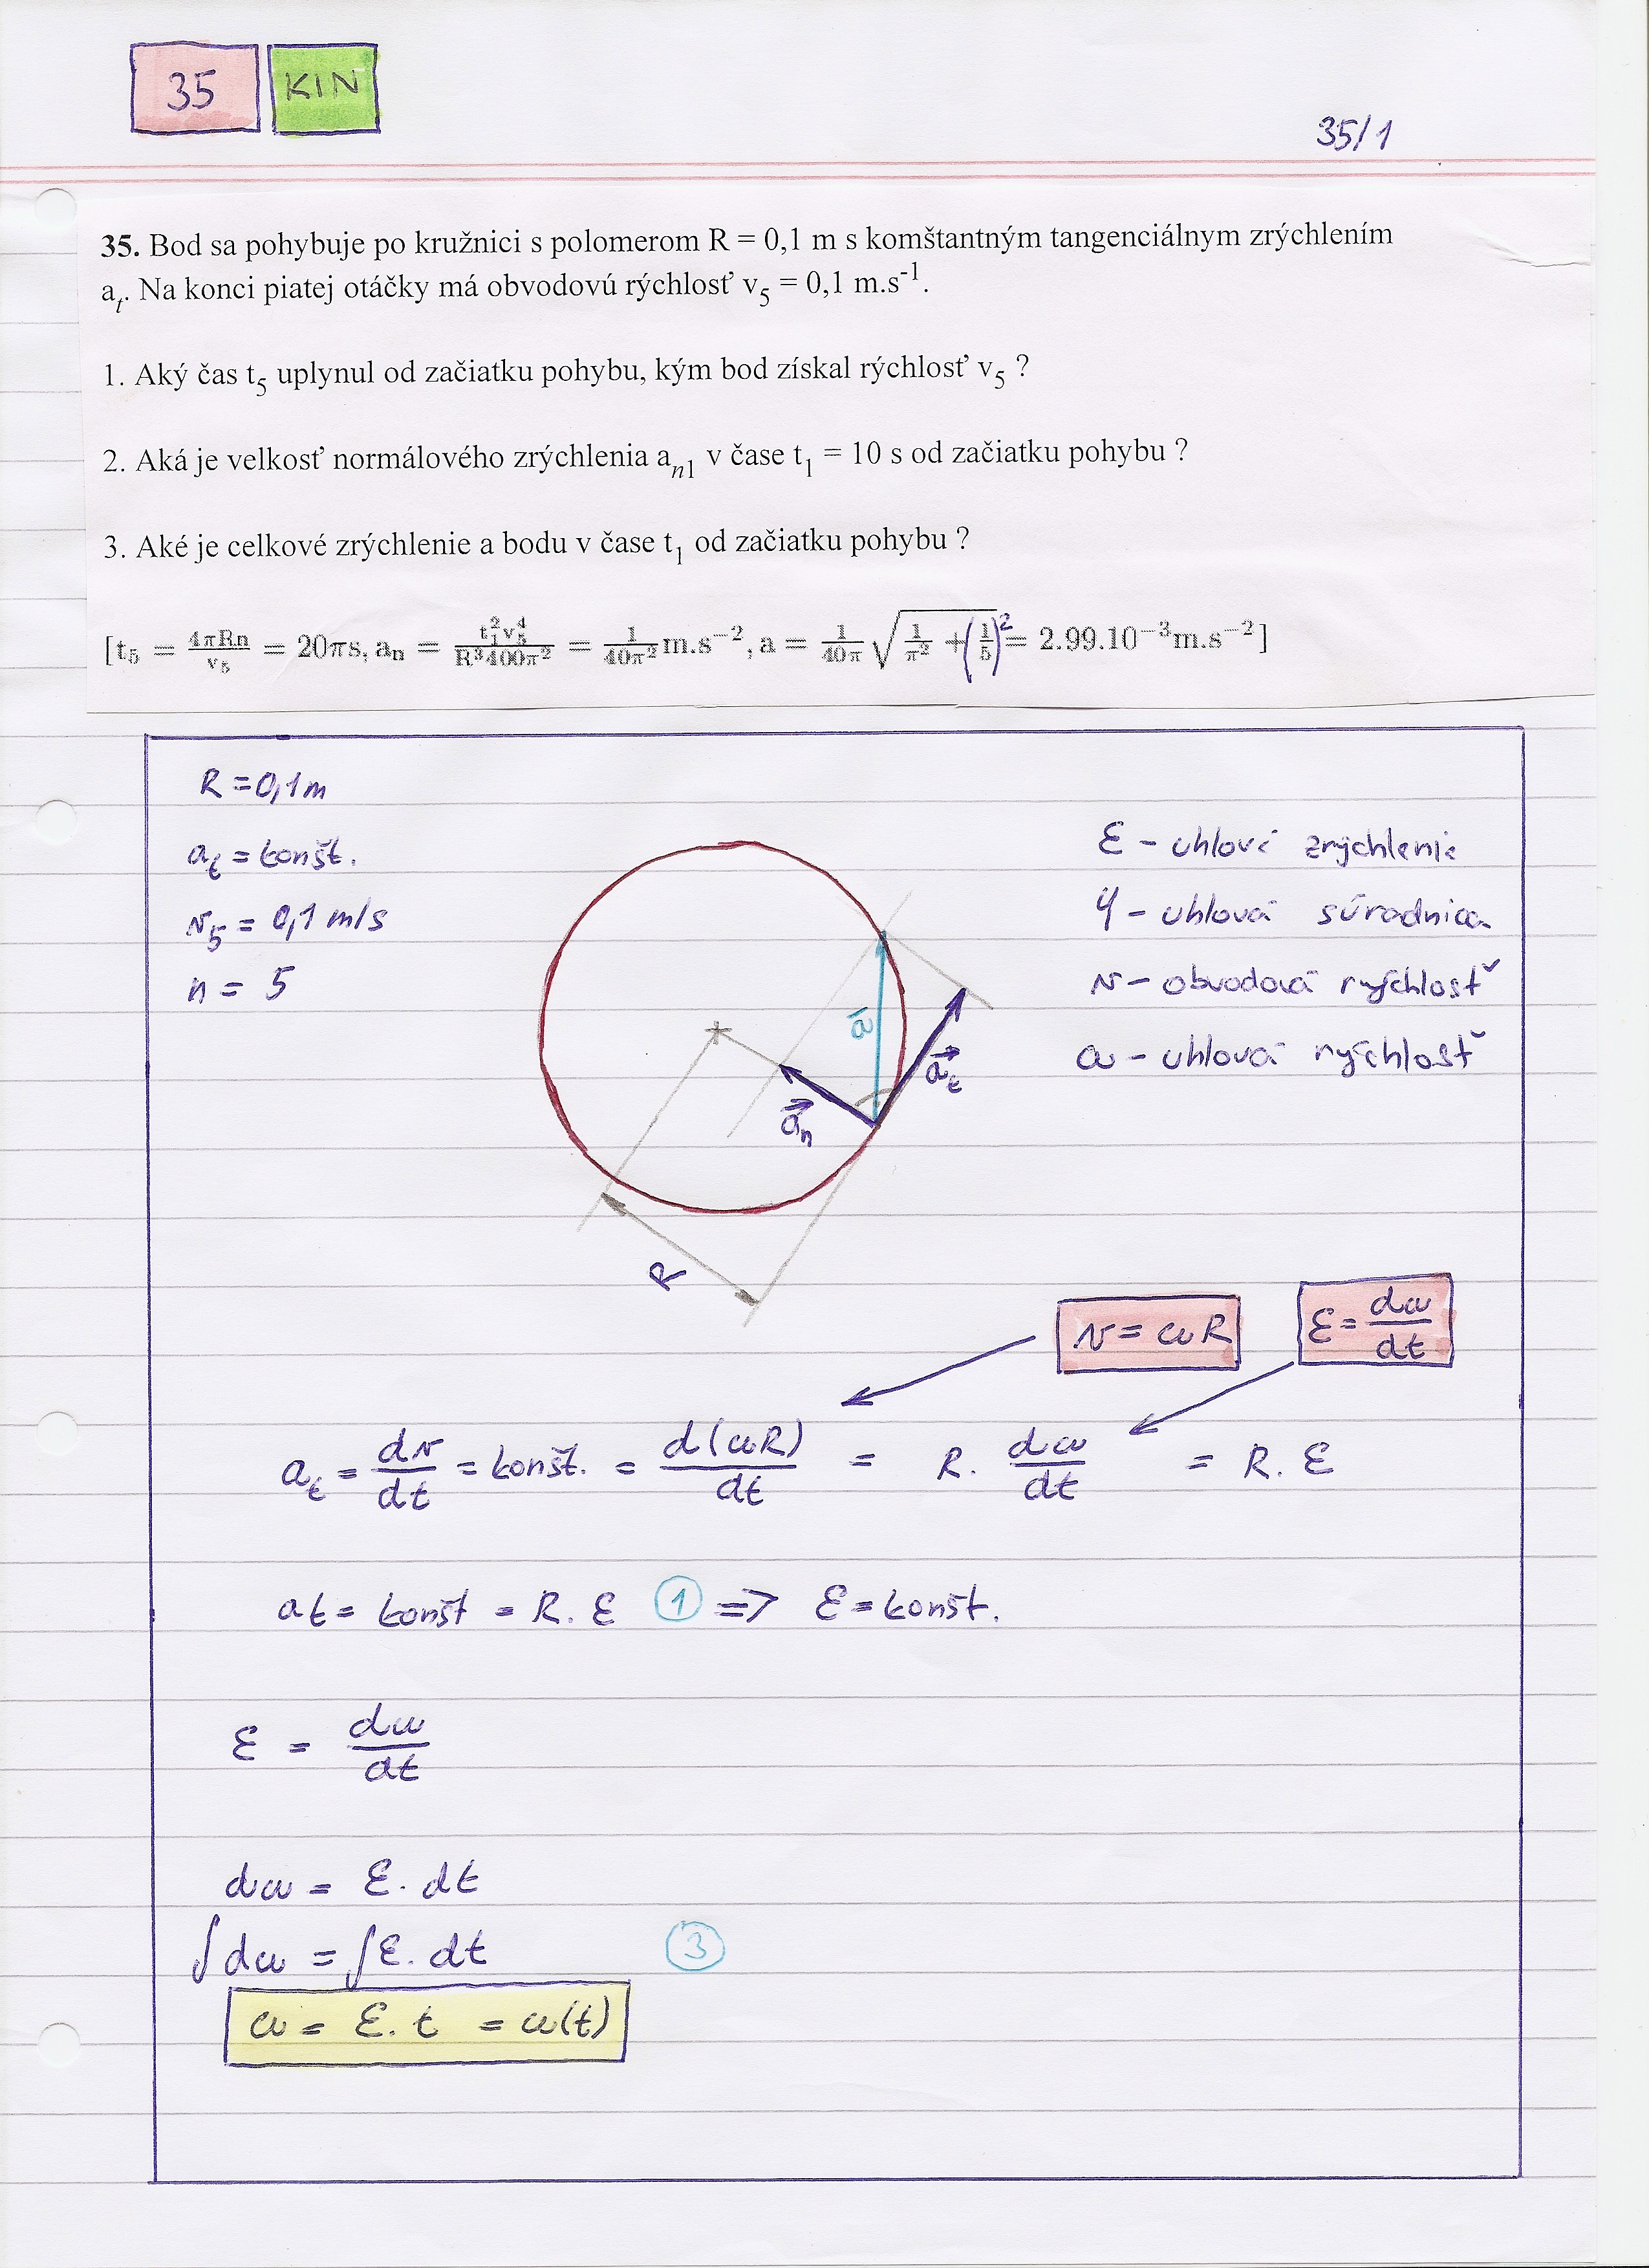 35 KIN
35/1
35. Bod sa pohybuje po kružnici s polomerom R = 0,1 m s komštantným tangenciálnym zrýchlením
a_t. Na konci piatej otáčky má obvodovú rýchlosť v_5 = 0,1 m.s^-1.
1. Aký čas t_5 uplynul od začiatku pohybu, kým bod získal rýchlosť v_5 ?
2. Aká je velkosť normálového zrýchlenia a_n1 v čase t_1 = 10 s od začiatku pohybu ?
3. Aké je celkové zrýchlenie a bodu v čase t_1 od začiatku pohybu ?
[t_5 = 4πRn/v_5 = 20πs, a_n = t_1^2 v_5^4/R^3 400π^2 = 1/40π^2 m.s^-2, a = 1/40π √(1/π^2 + (1/5)^2) = 2.99.10^-3 m.s^-2]
R = 0,1m
a_t = konšt.
v_5 = 0,1 m/s
n = 5
ε - uhlové zrýchlenie
φ - uhlová súradnica
v - obvodová rýchlosť
ω - uhlová rýchlosť
a⃗
a⃗_t
a⃗_n
R
v = ωR
ε = dω/dt
a_t = dv/dt = konšt. = d(ωR)/dt = R. dω/dt = R. ε
at = konšt = R. ε ① => ε = konšt.
ε = dω/dt
dω = ε. dt
∫dω = ∫ε. dt ③
ω = ε. t = ω(t)